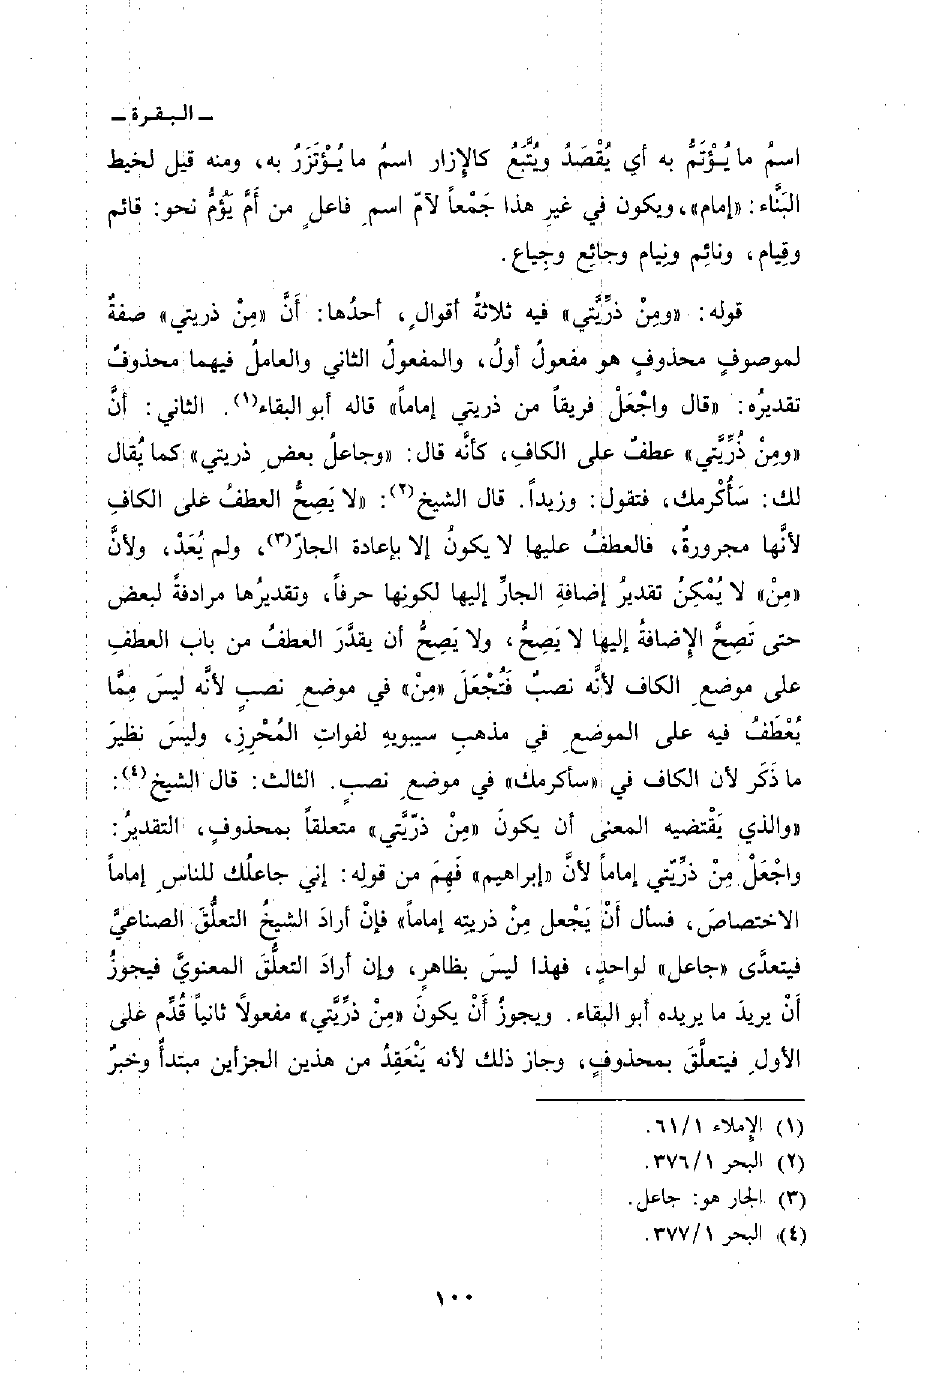 ـ البقرة ـ
اسمُ ما يُؤْتَمُّ به أي يُقْصَدُ ويُتَّبَعُ كالإِزار اسمُ ما يُؤْتَزَرُ به، ومنه قيل لخيط
البَنَّاء: «إمام»، ويكون في غيرِ هذا جَمْعاً لآمّ اسمِ فاعلٍ من أَمَّ يَؤُمُّ نحو: قائم
وقِيام، ونائِم ونِيام وجائِع وجِياع.
قوله: «ومِنْ ذرِّيَّتي» فيه ثلاثةُ أقوالٍ، أحدُها: أنَّ «مِنْ ذريتي» صفةٌ
لموصوفٍ محذوفٍ هو مفعولٌ أولُ، والمفعولُ الثاني والعاملُ فيهما محذوفٌ
تقديرُه: «قال واجْعَلْ فريقاً من ذريتي إماماً» قاله أبو البقاء(١). الثاني: أنَّ
«ومِنْ ذُرِّيَّتي» عطفٌ على الكافِ، كأنَّه قال: «وجاعلُ بعضِ ذريتي» كما يُقال
لك: سَأُكْرمك، فتقول: وزيداً. قال الشيخ(٢): «لا يَصِحُّ العطفُ على الكافِ
لأنَّها مجرورةٌ، فالعطفُ عليها لا يكونُ إلا بإعادة الجارّ(٣)، ولم يُعَدْ، ولأنَّ
«مِنْ» لا يُمْكِنُ تقديرُ إضافةِ الجارِّ إليها لكونِها حرفاً، وتقديرُها مرادفةً لبعض
حتى تَصِحَّ الإِضافةُ إليها لا يَصِحُّ، ولا يَصِحُّ أن يقدَّرَ العطفُ من باب العطفِ
على موضعِ الكاف لأنَّه نصبٌ فَتُجْعَلَ «مِنْ» في موضعِ نصبٍ لأنَّه ليسَ مِمَّا
يُعْطَفُ فيه على الموضعِ في مذهبِ سيبويهِ لفواتِ المُحْرِزِ، وليسَ نظيرَ
ما ذَكَر لأن الكاف في «سأكرمك» في موضعِ نصبٍ. الثالث: قال الشيخ(٤):
«والذي يَقْتضيه المعنى أن يكونَ «مِنْ ذرّيَّتي» متعلقاً بمحذوفٍ، التقديرُ:
واجْعَلْ مِنْ ذرِّيّتي إماماً لأنَّ «إبراهيم» فَهِمَ من قولِه: إني جاعلُك للناسِ إماماً
الاختصاصَ، فسأل أَنْ يَجْعل مِنْ ذريته إماماً» فإنْ أرادَ الشيخُ التعلُّقَ الصناعيَّ
فيتعدَّى «جاعل» لواحدٍ، فهذا ليسَ بظاهرٍ، وإن أرادَ التعلُّقَ المعنويَّ فيجوزُ
أَنْ يريدَ ما يريده أبو البقاء. ويجوزُ أَنْ يكونَ «مِنْ ذرِّيَّتي» مفعولاً ثانياً قُدِّم على
الأولِ فيتعلَّقَ بمحذوفٍ، وجاز ذلك لأنه يَنْعَقِدُ من هذين الجزأين مبتدأٌ وخبرٌ
(١) الإملاء ٦١/١.
(٢) البحر ٣٧٦/١.
(٣) الجار هو: جاعل.
(٤) البحر ٣٧٧/١.
١٠٠